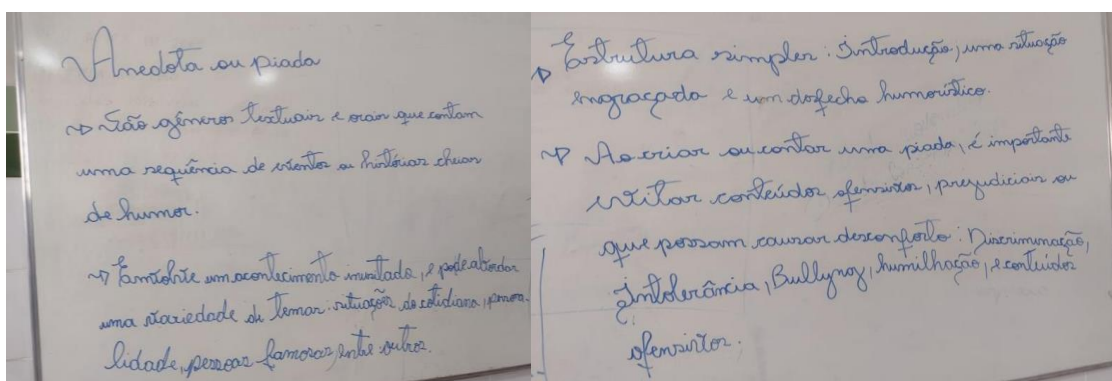 Anedota ou piada
→ São gêneros textuais e orais que contam
uma sequência de eventos ou histórias cheias
de humor.
→ Envolve um acontecimento inusitado, e pode abordar
uma variedade de temas: situações do cotidiano,
lidade, pessoas famosas, entre outros.
→ Estrutura simples: Introdução, uma situação
engraçada e um desfecho humorístico.
→ Ao criar ou contar uma piada, é importante
evitar conteúdos ofensivos, prejudiciais ou
que possam causar desconforto: Discriminação,
Intolerância, Bullyng, humilhação, e conteúdos
ofensivos.